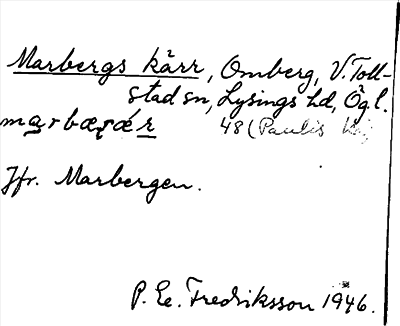 Marbergs kärr, Omberg, V. Toll-
stad sn, Lysings hd, Ög l.
marbæṛćæ̣r 48 (Paulis
Jfr. Marbergen.
P. E. Fredriksson 1946.